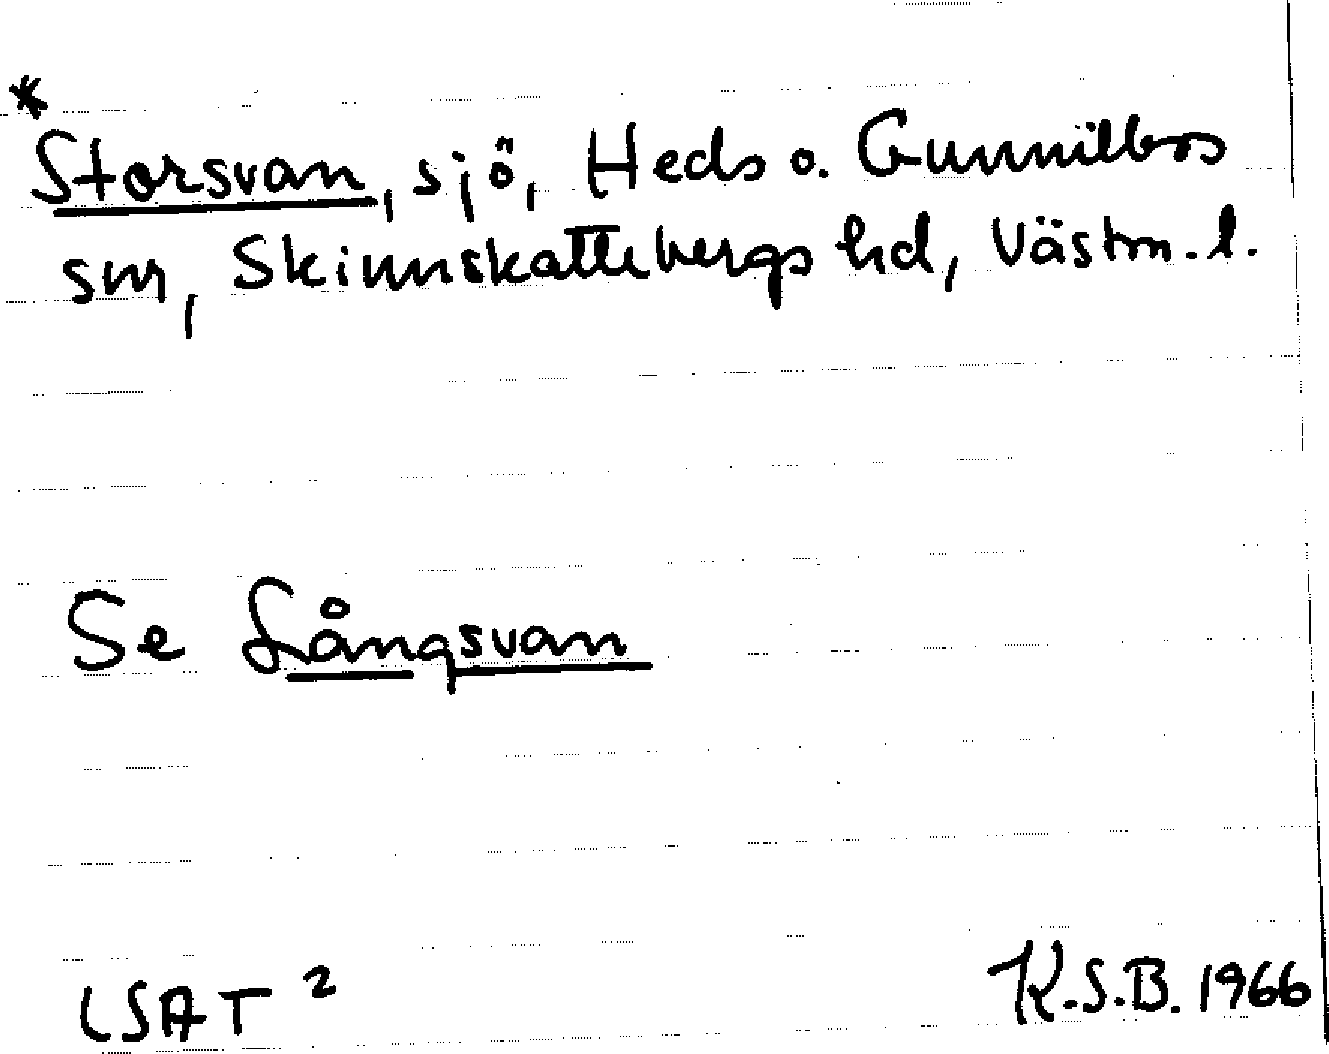 *
Storsvan, sjö, Heds o. Gunnilbos
snr, Skinnskattebergs hd, Västm. l.
Se Långsvan
LSAT 2
K.S.B. 1966